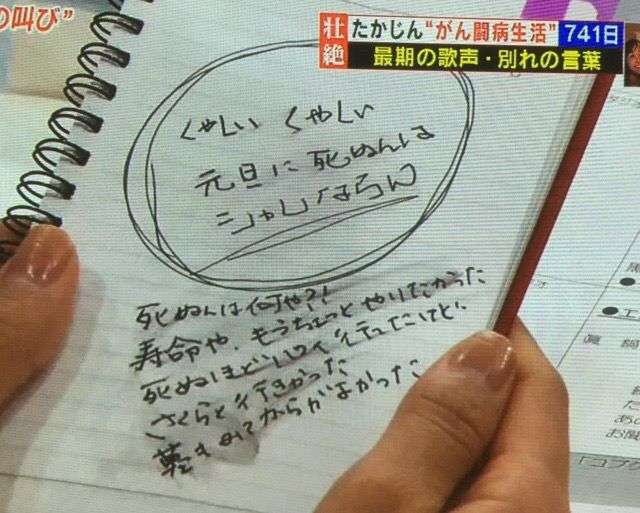 の叫び”
壮絶
たかじん“がん闘病生活”
741日
最期の歌声・別れの言葉
くやしい くやしい
元旦に死ぬんは
シャレならん
死ぬんは何や?!
寿命や、もうちょっとやりたかった
死ぬほどハワイ行ったけど
さくらと行きかった
乾きめてからがよかった